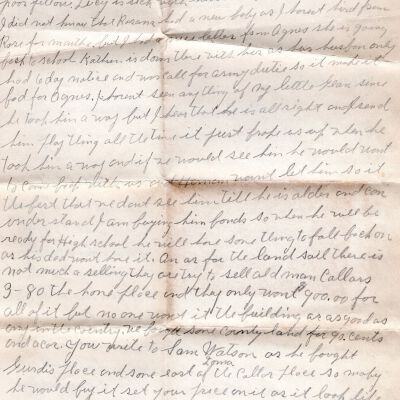 poor fellow, Lucy is sick
I did not know that Rosann had a new baby as I havent heard from
Rose for months. but I had a letter from Agnes she is going
back to school Kathern is down there with her as her husban only
had 10 day notice and was call for army duties so it makes it
bad for Agnes. I havent seen any thing of my little since
he took him a way but I hear that he is all right and I send
him play thing all the time it just broke us up when he
took him a way and if we would see him he would want
to come back with us and wont let him so it
the best that we dont see him till he is older and can
under stand I am buying him bonds so when he will be
ready for High school he will have some thing to fall back on
as his dad wont have it. An as for the land sail there is
not much a selling they are try to sell old man Callars
3-80 the home place and they only want $900.00 for
all of it but no one wont it the building are as good as
any in the country. we some County land for 90 cents
and acor. You write to Sam Watson as he bought
Iowa
Gurdis place and some east of the Callor place so maby
he would buy it set your price on it as it look like